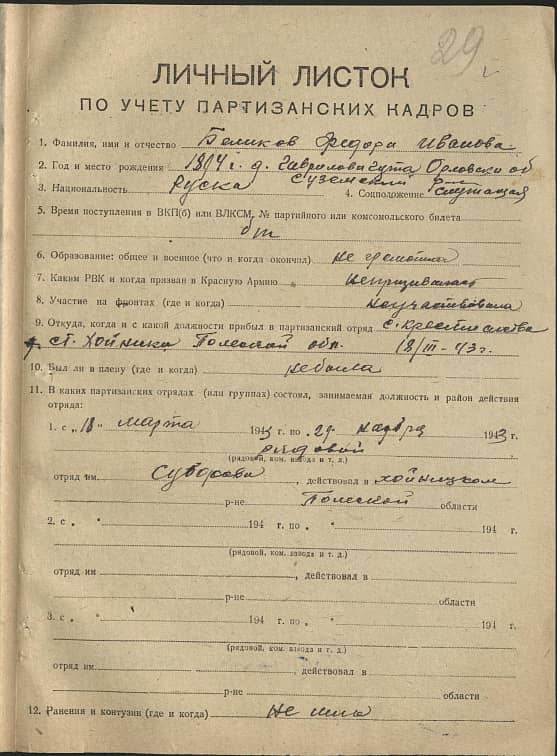 29 г.
ЛИЧНЫЙ ЛИСТОК
ПО УЧЕТУ ПАРТИЗАНСКИХ КАДРОВ
1. Фамилия, имя и отчество Беликов Федора Иванова
2. Год и место рождения г. д. Гаврилова гута Орловски об
Суземский
3. Национальность Руска 4. Соцположение служащая
5. Время поступления в ВКП(б) или ВЛКСМ, № партийного или комсомольского билета
б/п
6. Образование: общее и военное (что и когда окончил) не грамотная
7. Каким РВК и когда призван в Красную Армию
8. Участие на фронтах (где и когда) Неучаствовала
9. Откуда, когда и с какой должности прибыл в партизанский отряд с. крестянства
ст. Хойники Полеской обл. 18/III-43 г.
10. Был ли в плену (где и когда) небыла
11. В каких партизанских отрядах (или группах) состоял, занимаемая должность и район действия
отряда:
1. с „18" марта 1943 г. по „29" ноября 1943 г.
рядовой
(рядовой, ком. взвода и т. д.)
отряд им. Суворова, действовал в хойницком
р-не Полеской области
2. с „ " 194 г. по „ " 194 г.
(рядовой, ком. взвода и т. д.)
отряд им , действовал в
р-не области
3. с „ " 194 г. по „ " 194 г.
(рядовой, ком. взвода и т. д.)
отряд им. , действовал в
р-не области
12. Ранения и контузии (где и когда) не